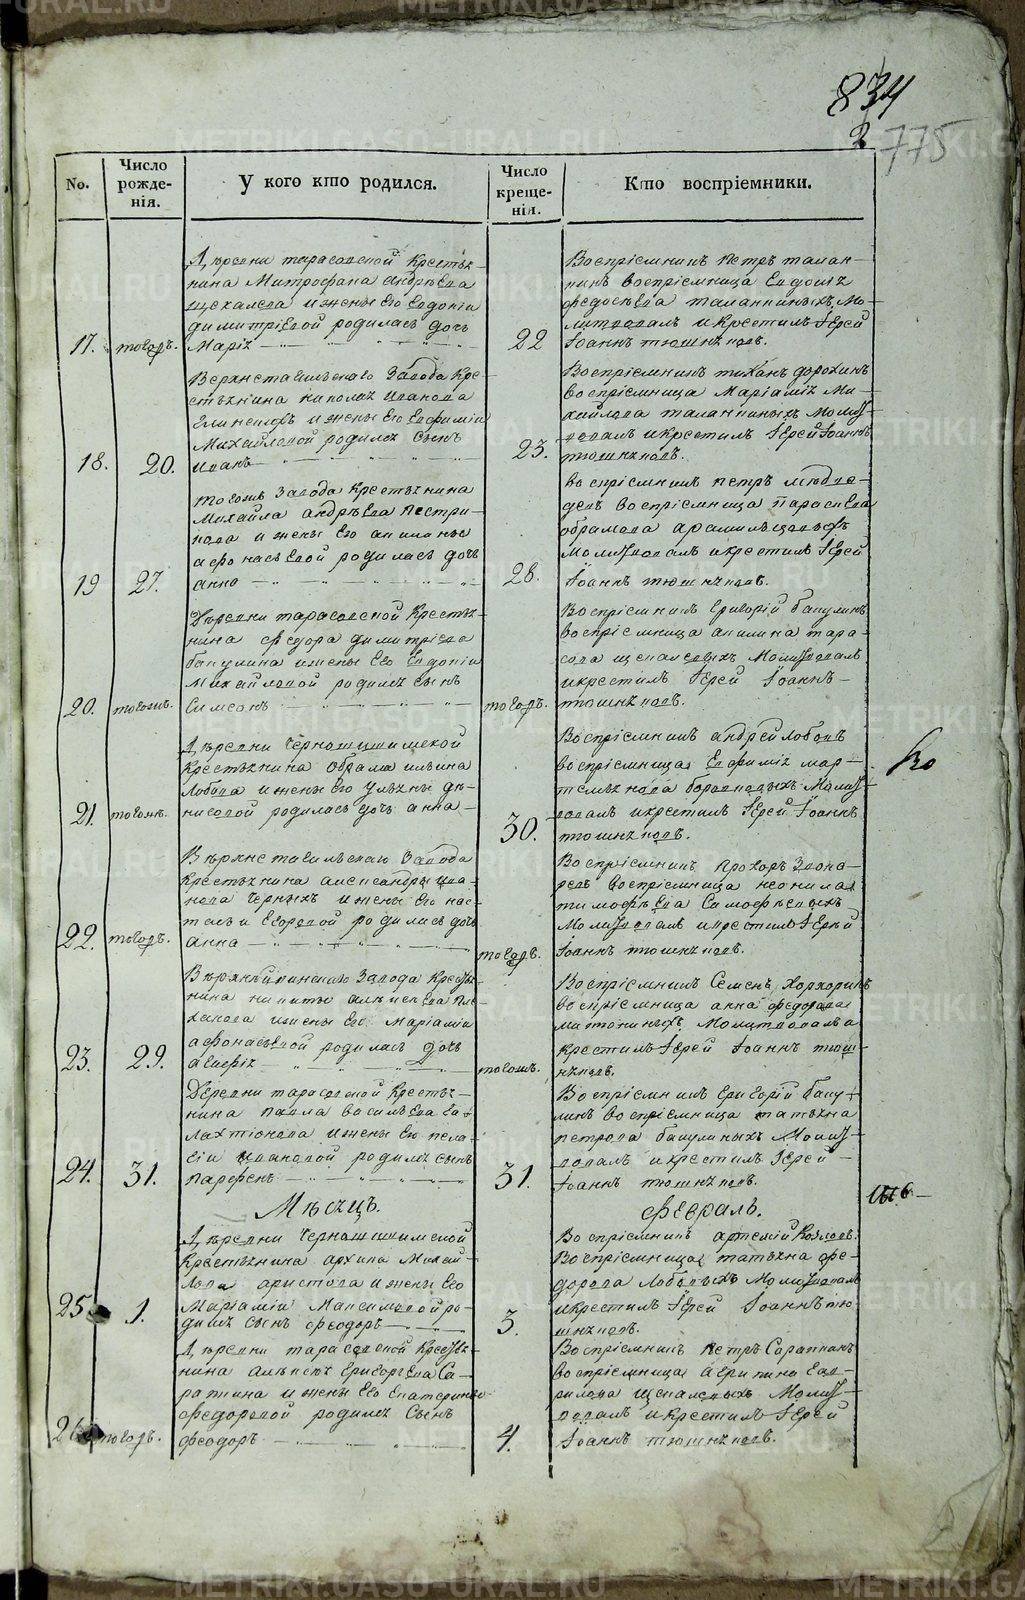 834
2
775
No.
Число рожде-нія.
У кого кто родился.
Число креще-нія.
Кто воспріемники.
17.
тогожъ.
Деревни тарасовской Крестья-
нина Митрофана андрѣева
и жены Его Евдокіи
димитріевой родилась дочь
Марія
22
Воспріемникъ Петръ талан-
кинъ воспріемница Евдокія
федосѣева таланкиныхъ Мо-
литвовалъ и Крестилъ Іерей
Іоаннъ тюшняковъ.
18.
20.
Верхнетагильскаго Завода Кре-
стьянина Николая Иванова
и жены Его Евфиміи
Михайловой родился Сынъ
Иванъ
23.
Воспріемникъ тиханъ дорохинъ
воспріемница Маріамія Ми-
хайлова таланкиныхъ Молит-
вовалъ и крестилъ Іерей Іоаннъ
тюшняковъ.
19
27.
тогожъ Завода Крестьянина
Михайла андрѣева Пестри-
кова и жены Его акилины
афонасьевой родилась дочь
анна
28.
воспріемникъ петръ
воспріемница Параскева
абрамова
Молитвовалъ и крестилъ Іерей
Іоаннъ тюшняковъ.
20.
тогожъ.
Деревни тарасовской Крестья-
нина федора димитріева
бакулина и жены Его Евдокіи
Михайловой родился сынъ
Симеонъ
тогожъ.
Воспріемникъ Григорій бакулинъ
воспріемница акилина тара-
сова Молитвовалъ
и крестилъ Іерей Іоаннъ
тюшняковъ.
21.
тогожъ.
Деревни Черношишимской
Крестьянина Абрама ильина
Лобова и жены Его Ульяны ді-
нисовой родилась дочь анна
30.
Воспріемникъ андрей Лобовъ
воспріемница Евфимія мар-
темьянова Молит-
вовалъ и крестилъ Іерей Іоаннъ
тюшняковъ.
22.
тогожъ.
Верхнетагильскаго Завода
Крестьянина александра ива-
нова Черныхъ и жены Его нас-
тасьи Егоровой родилась дочь
анна
тогожъ.
Воспріемникъ прохоръ Звона-
ревъ воспріемница неонила
тимофѣева
Молитвовалъ и крестилъ Іерей
Іоаннъ тюшняковъ.
23.
29.
Завода Кресть-
нина никиты алексеева Пле-
ханова и жены Его Маріаміи
афонасьевой родилась дочь
тогожъ.
Воспріемникъ Семенъ
воспріемница анна федорова
Молитвовалъ и
крестилъ Іерей Іоаннъ тюш-
няковъ.
24.
31.
Деревни тарасовской Кресть-
нина павла васильева Га-
лахтіонова и жены Его пела-
гіи ивановой родился сынъ
парфенъ
31.
Воспріемникъ Григорій баку-
линъ воспріемница татьяна
петрова бакулиныхъ Молит-
вовалъ и крестилъ Іерей
Іоаннъ тюшняковъ.
Мѣсяцъ. Февраль.
25
1.
Деревни Черношишимской
Крестьянина архипа Михай-
лова аристова и жены Его
Маріаміи Максимовой ро-
дился сынъ феодоръ
3.
Воспріемникъ артемій Козловъ.
Воспріемница татьяна фе-
дорова Лобовыхъ Молитвовалъ
и крестилъ Іерей Іоаннъ тю-
шняковъ.
26
тогожъ.
Деревни тарасовской Кресть-
нина алексея Григорьева Са-
рапкина и жены Его Екатерины
федоровой родился Сынъ
феодоръ
4.
Воспріемникъ петръ Сарапкинъ
воспріемница агрипина Гав-
рилова Молит-
вовалъ и крестилъ Іерей
Іоаннъ тюшняковъ.
METRIKI.GASO-URAL.RU